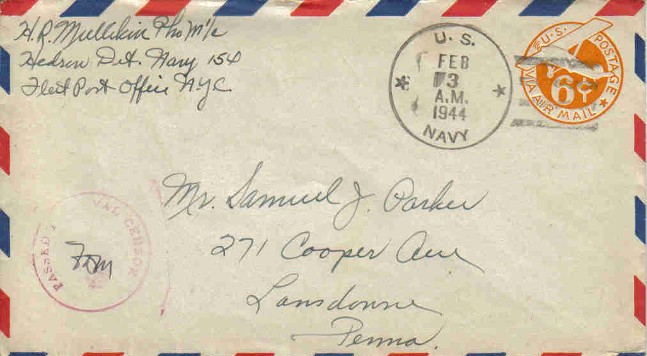 H.R. Mullikin Pho M 1/c
Hedron Det. Navy 154
Fleet Post Office NYC
U.S.
FEB
3
A.M.
1944
NAVY
U.S. POSTAGE
6¢
VIA AIR MAIL
Mr. Samuel J. Parker
271 Cooper Ave
Lansdowne
Penna.
PASSED NAVAL CENSOR